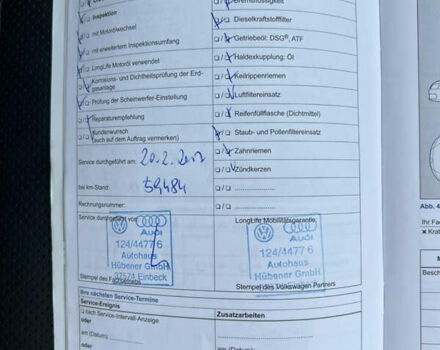 Inspektion
Bremsflüssigkeit
mit Motorölwechsel
Dieselkraftstofffilter
mit erweitertem Inspektionsumfang
Getriebeöl: DSG®, ATF
LongLife Motoröl verwendet
Haldexkupplung: Öl
Korrosions- und Dichtheitsprüfung der Erd-
gasanlage
Keilrippenriemen
Luftfiltereinsatz
Prüfung der Scheinwerfer-Einstellung
Reparaturempfehlung
Reifenfüllflasche (Dichtmittel)
Kundenwunsch
(auch auf dem Auftrag vermerken)
Staub- und Pollenfiltereinsatz
Zahnriemen
Service durchgeführt am: 20.2.
Zündkerzen
bei km-Stand: 59484
Rechnungsnummer:
Service durchgeführt von:
LongLife Mobilitätsgarantie
Audi
124/4477 6
Autohaus
Hübener GmbH
37574 Einbeck
Audi
124/4477 6
Autohaus
Hübener GmbH
Stempel des Fachbetriebs
Stempel des Volkswagen Partners
Ihre nächsten Service-Termine
Service-Ereignis
nach Service-Intervall-Anzeige
Zusatzarbeiten
oder
am (Datum)
oder
am (Datum)
Abb. 4
Ihr Fa
Krat
M
Besch